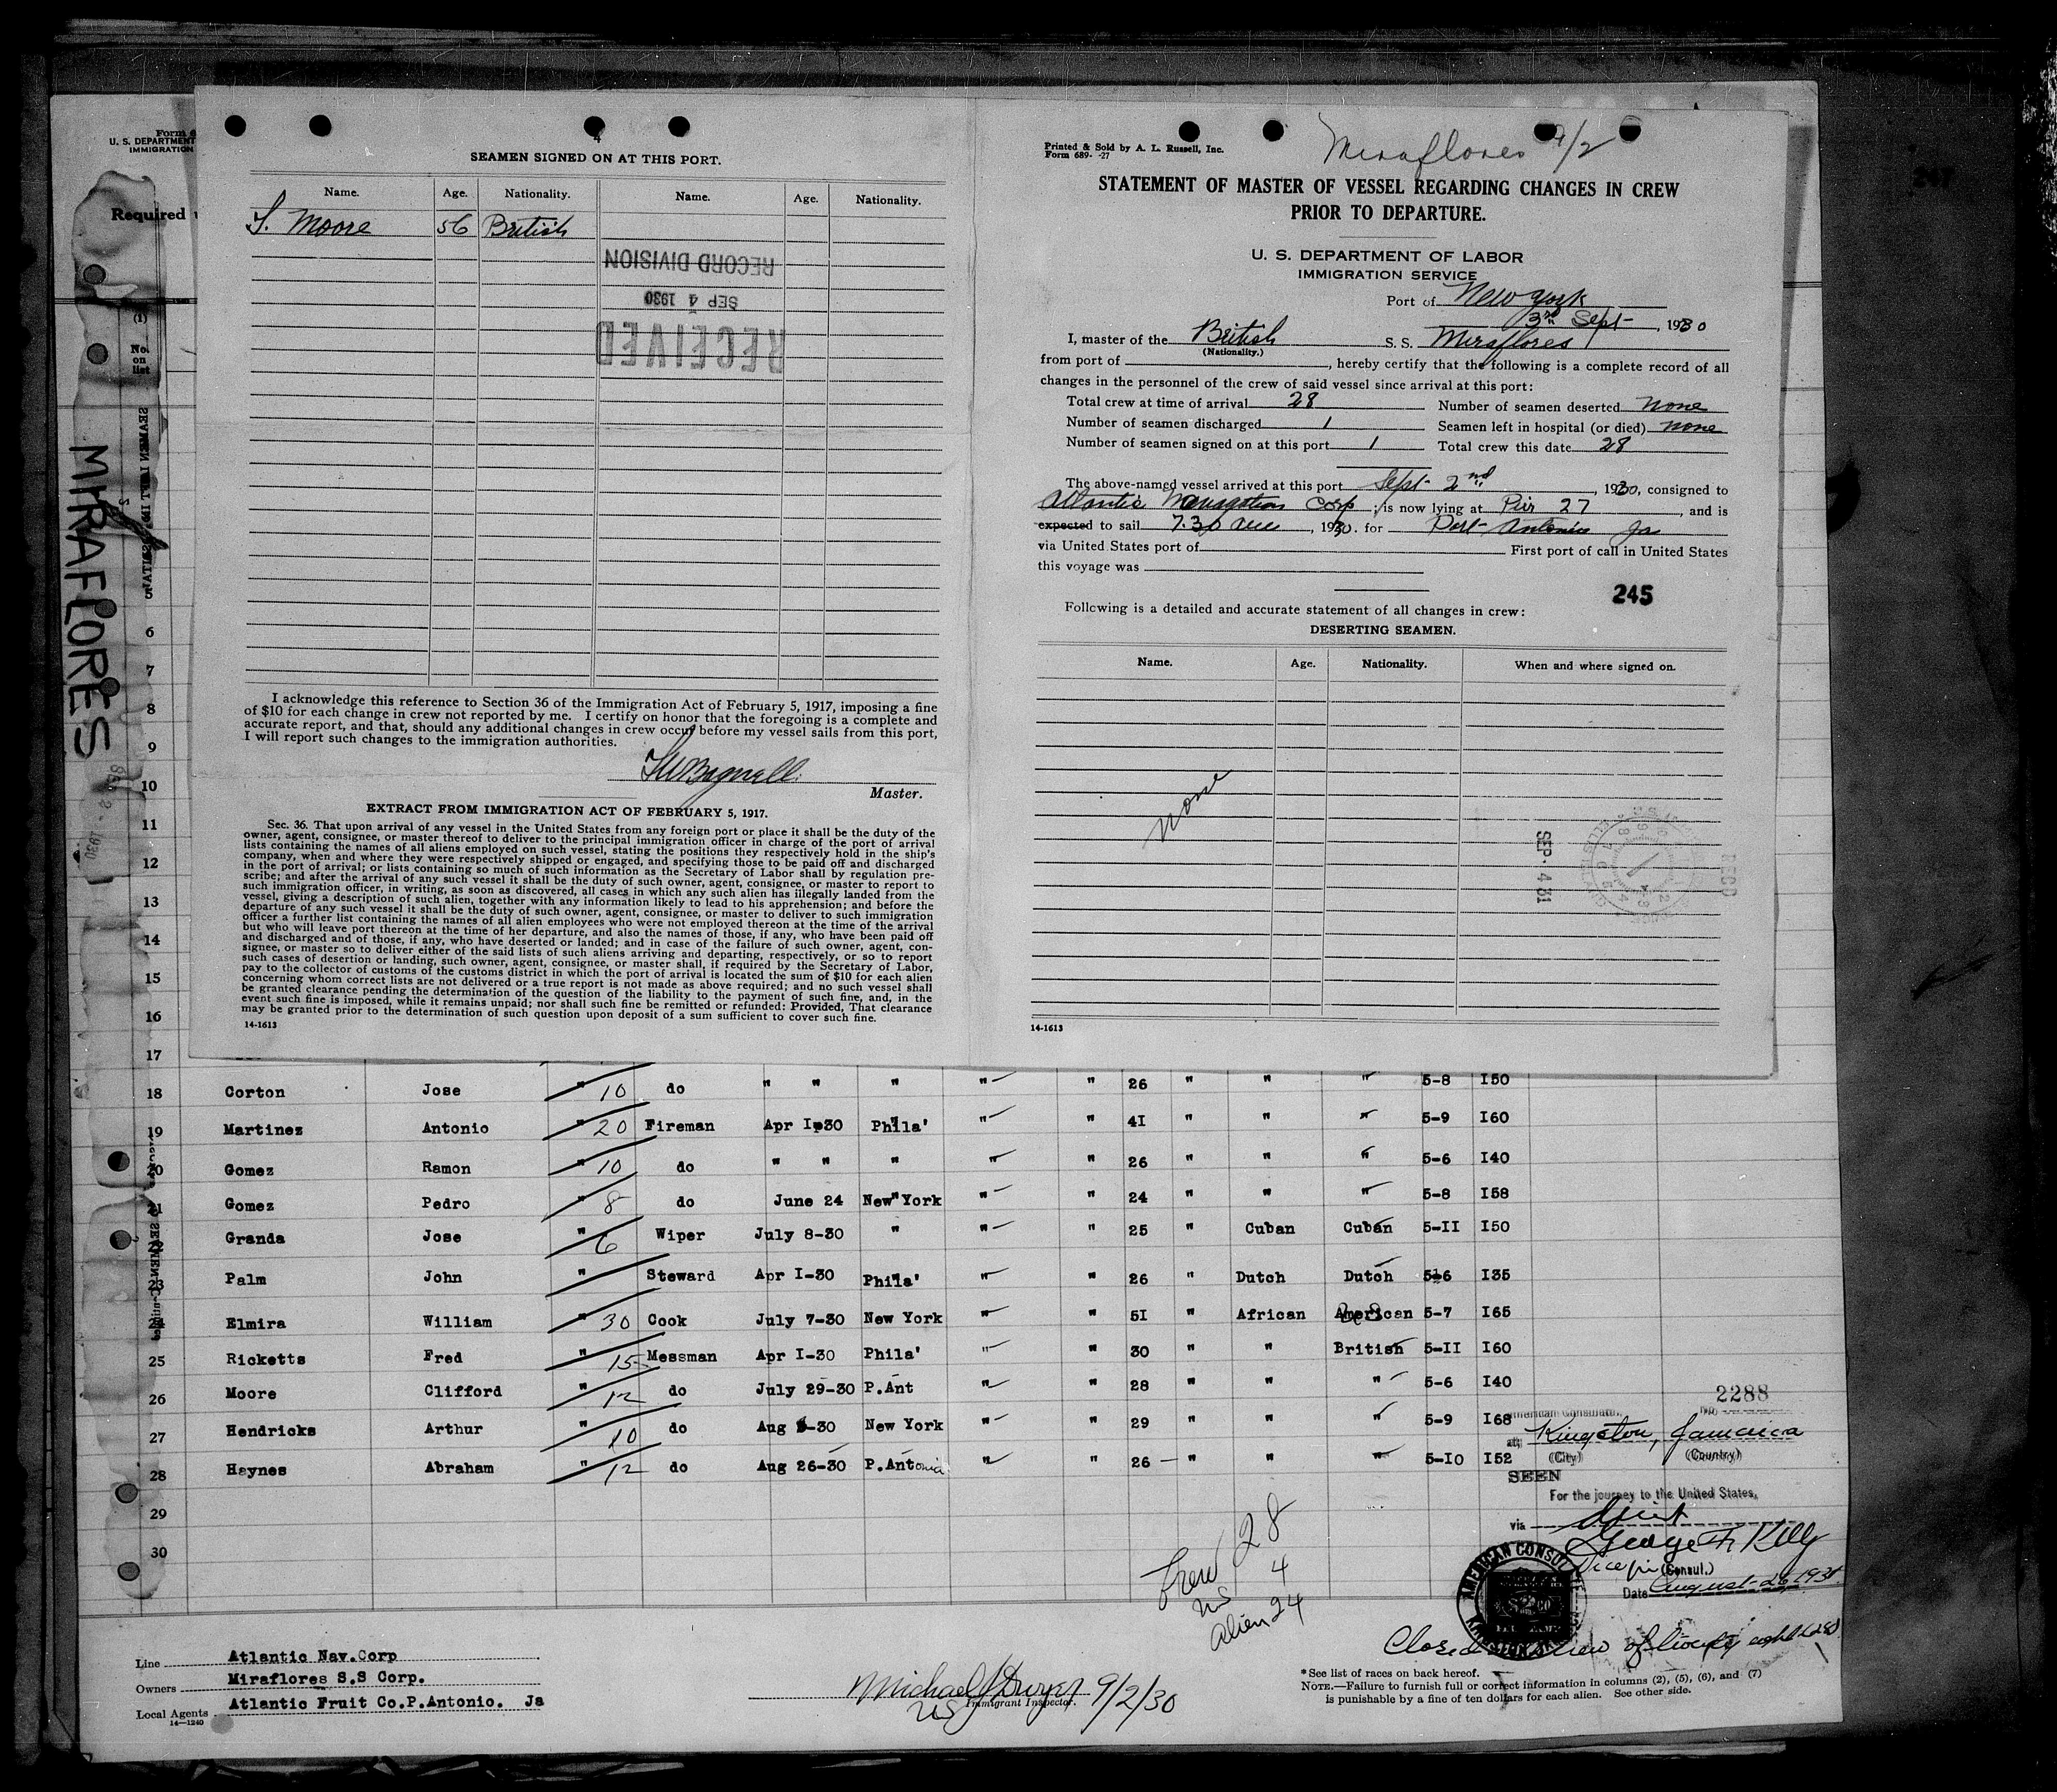 Form 6
U. S. DEPARTMENT
IMMIGRATION
Required
(1)
No.
on
list
MIRAFLORES
SEP 2 - 1930
4
SEAMEN SIGNED ON AT THIS PORT.
Name. Age. Nationality. Name. Age. Nationality.
S. Moore 56 British
RECORD DIVISION
SEP 4 1930
RECEIVED
I acknowledge this reference to Section 36 of the Immigration Act of February 5, 1917, imposing a fine
of $10 for each change in crew not reported by me. I certify on honor that the foregoing is a complete and
accurate report, and that, should any additional changes in crew occur before my vessel sails from this port,
I will report such changes to the immigration authorities.
Master.
EXTRACT FROM IMMIGRATION ACT OF FEBRUARY 5, 1917.
Sec. 36. That upon arrival of any vessel in the United States from any foreign port or place it shall be the duty of the
owner, agent, consignee, or master thereof to deliver to the principal immigration officer in charge of the port of arrival
lists containing the names of all aliens employed on such vessel, stating the positions they respectively hold in the ship's
company, when and where they were respectively shipped or engaged, and specifying those to be paid off and discharged
in the port of arrival; or lists containing so much of such information as the Secretary of Labor shall by regulation pre-
scribe; and after the arrival of any such vessel it shall be the duty of such owner, agent, consignee, or master to report to
such immigration officer, in writing, as soon as discovered, all cases in which any such alien has illegally landed from the
vessel, giving a description of such alien, together with any information likely to lead to his apprehension; and before the
departure of any such vessel it shall be the duty of such owner, agent, consignee, or master to deliver to such immigration
officer a further list containing the names of all alien employees who were not employed thereon at the time of the arrival
but who will leave port thereon at the time of her departure, and also the names of those, if any, who have been paid off
and discharged and of those, if any, who have deserted or landed; and in case of the failure of such owner, agent, con-
signee, or master so to deliver either of the said lists of such aliens arriving and departing, respectively, or so to report
such cases of desertion or landing, such owner, agent, consignee, or master shall, if required by the Secretary of Labor,
pay to the collector of customs of the customs district in which the port of arrival is located the sum of $10 for each alien
concerning whom correct lists are not delivered or a true report is not made as above required; and no such vessel shall
be granted clearance pending the determination of the question of the liability to the payment of such fine, and, in the
event such fine is imposed, while it remains unpaid; nor shall such fine be remitted or refunded: Provided, That clearance
may be granted prior to the determination of such question upon deposit of a sum sufficient to cover such fine.
14-1613
Printed & Sold by A. L. Russell, Inc.
Form 689- -27
Miraflores 9/2
STATEMENT OF MASTER OF VESSEL REGARDING CHANGES IN CREW
PRIOR TO DEPARTURE.
U. S. DEPARTMENT OF LABOR
IMMIGRATION SERVICE
Port of New York
3rd Sept , 1930
I, master of the British S. S. Miraflores
(Nationality.)
from port of , hereby certify that the following is a complete record of all
changes in the personnel of the crew of said vessel since arrival at this port:
Total crew at time of arrival 28 Number of seamen deserted none
Number of seamen discharged 1 Seamen left in hospital (or died) none
Number of seamen signed on at this port 1 Total crew this date 28
The above-named vessel arrived at this port Sept 2nd , 1930, consigned to
Atlantic Navigation Corp ; is now lying at Pier 27 , and is
expected to sail 7.30 , 1930. for Port Antonio Ja
via United States port of First port of call in United States
this voyage was
245
Following is a detailed and accurate statement of all changes in crew:
DESERTING SEAMEN.
Name. Age. Nationality. When and where signed on.
none
SEP. 4 31
RECD
14-1613
5
6
7
8
9
10
11
12
13
14
15
16
17
18 Corton Jose " 10 do " " " " " 26 " " " 5-8 I50
19 Martinez Antonio " 20 Fireman Apr I-30 Phila' " " 4I " " " 5-9 I60
20 Gomez Ramon " 10 do " " " " " 26 " " " 5-6 I40
21 Gomez Pedro " 8 do June 24 New York " " 24 " " " 5-8 I58
22 Granda Jose " 6 Wiper July 8-30 " " " 25 " Cuban Cuban 5-II I50
23 Palm John " Steward Apr I-30 Phila' " " 26 " Dutch Dutch 5-6 I35
24 Elmira William " 30 Cook July 7-30 New York " " 5I " African American 5-7 I65
25 Ricketts Fred " 15 Messman Apr I-30 Phila' " " 30 " " British 5-II I60
26 Moore Clifford " 12 do July 29-30 P.Ant " " 28 " " " 5-6 I40
27 Hendricks Arthur " 10 do Aug -30 New York " " 29 " " " 5-9 I68
28 Haynes Abraham " 12 do Aug 26-30 P.Antonio " " 26 " " " 5-10 I52
29
30
2288
American Consulate,
at Kingston, Jamaica
(City) (Country)
SEEN
For the journey to the United States,
via
George F. Kelly
Vice (Consul.)
Date August 26, 1930
AMERICAN CONSUL
Crew 28
US 4
alien 24
Closed crew of twenty eight (28)
Line Atlantic Nav.Corp
Owners Miraflores S.S Corp.
Local Agents Atlantic Fruit Co.P.Antonio. Ja
14-1240
Michael J Dwyer 9/2/30
US Immigrant Inspector. 9/2/30
*See list of races on back hereof.
NOTE.—Failure to furnish full or correct information in columns (2), (5), (6), and (7)
is punishable by a fine of ten dollars for each alien. See other side.